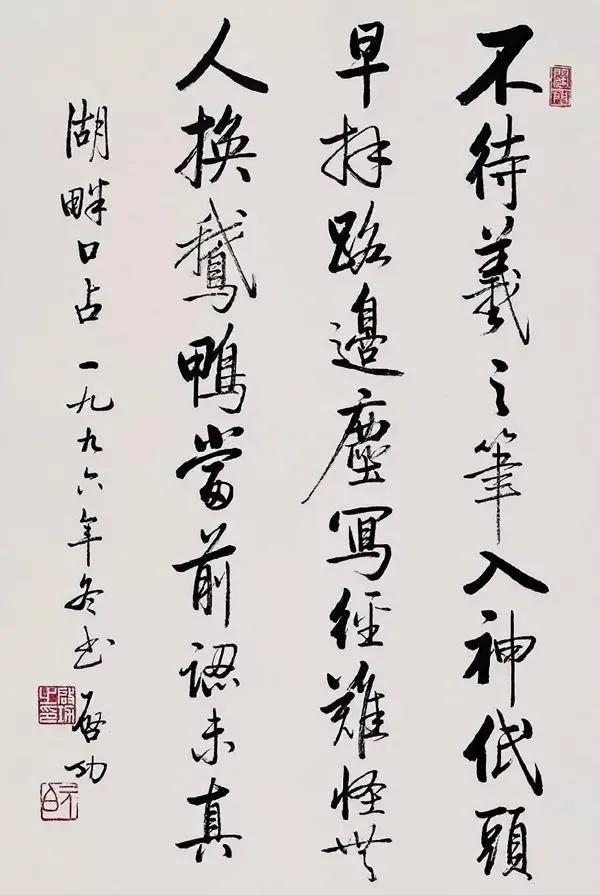 不待羲之筆入神低頭
早拜路邊塵寫經難怪無
人換鵝鴨當前認未真
湖畔口占 一九九六年冬書 啓功
啓功之印
元白